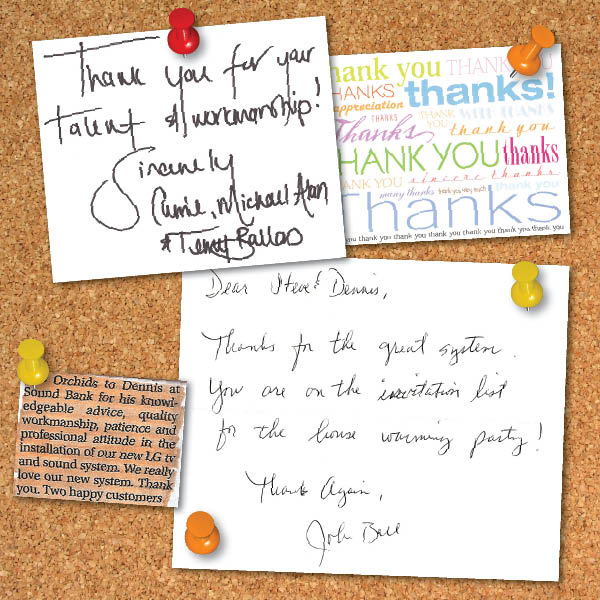 Thank you for your
talent & workmanship!
Sincerely
Carrie, Michael Alan
& Terry
thank you THANK YOU
THANKS thanks!
appreciation
THANKS THANK YOU WITH THANKS
Thanks thank you
THANK YOU thanks
THANK YOU sincere thanks
many thanks thank you very much! thank you
Thanks
thank you thank you thank you thank you thank you thank you
Dear Steve & Dennis,
Thanks for the great system.
You are on the invitation list
for the house warming party!
Thanks Again,
John Bell
Orchids to Dennis at
Sound Bank for his knowl-
edgeable advice, quality
workmanship, patience and
professional attitude in the
installation of our new LG tv
and sound system. We really
love our new system. Thank
you. Two happy customers